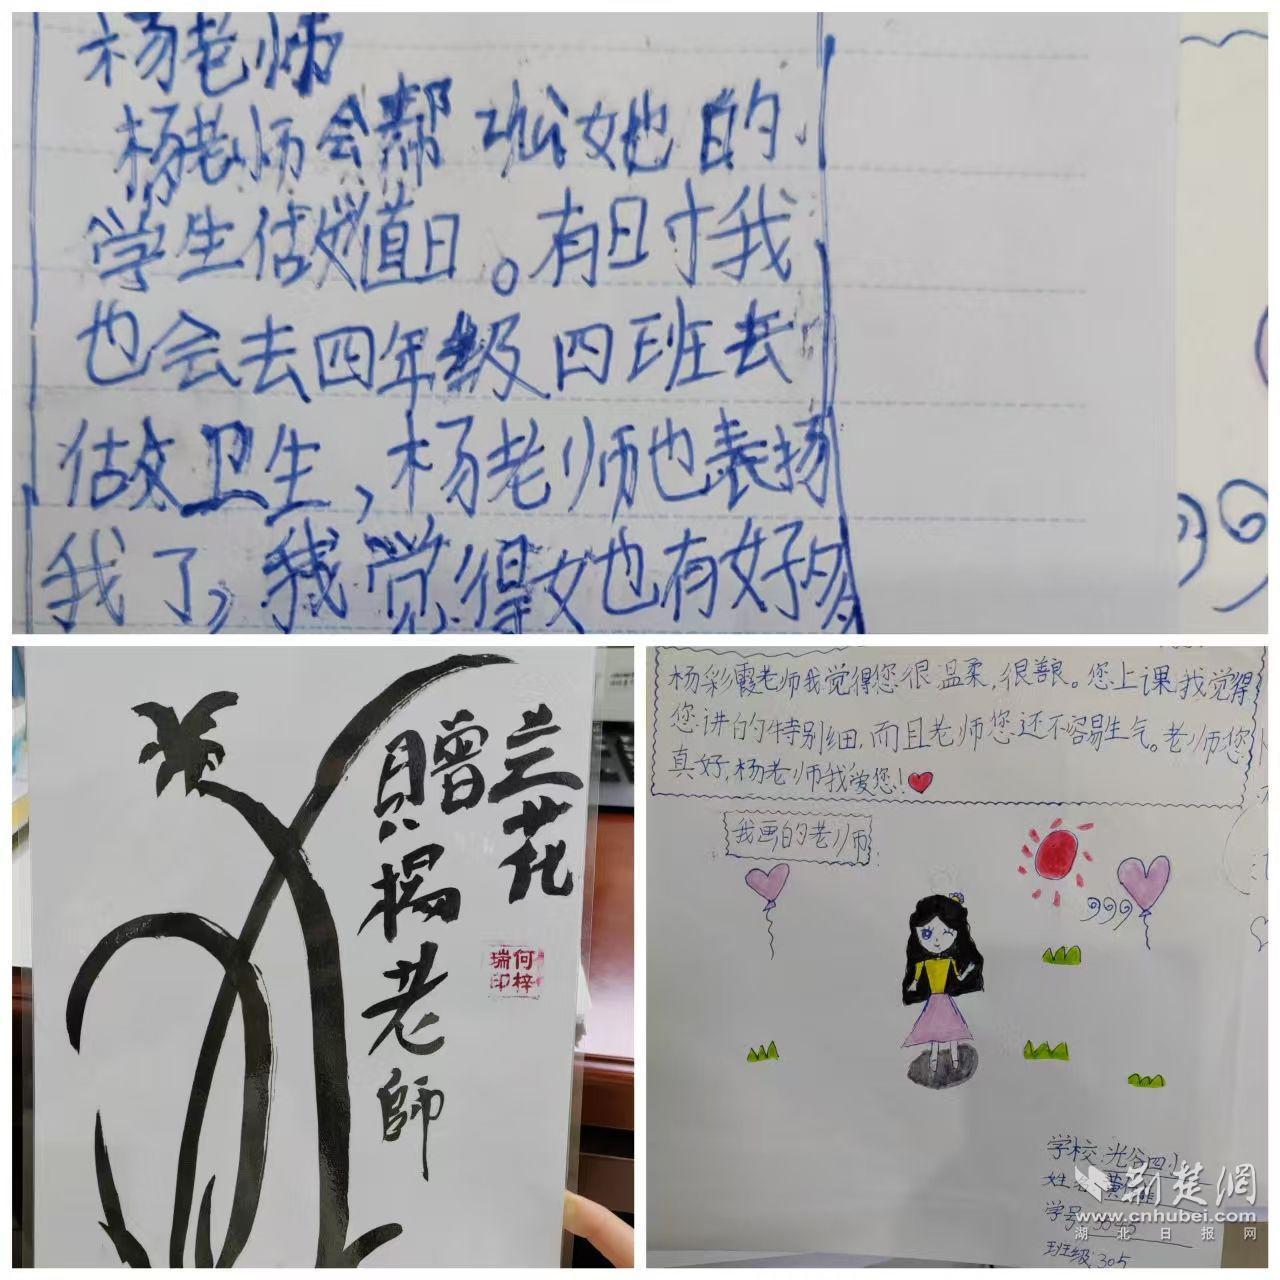 杨老师
杨老师会帮 她的
学生做值日。有时我
也会去四年级四班去
做卫生，杨老师也表扬
我了，我觉得女也有好多
兰花
贈楊老師
何梓
瑞印
杨彩霞老师我觉得您很温柔，很善良。您上课我觉得
您讲的特别细，而且老师您还不容易生气。老师您
真好，杨老师我爱您！
我画的老师
学校：光谷四小
姓名：黄
学号
班级：305
荆楚网
www.cnhubei.com
湖北日报网